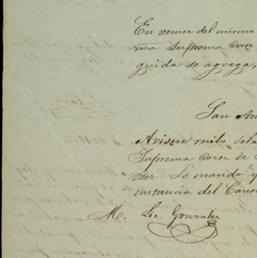 En veinse del mismo
ma Suprema Corte
guida se agrega,
San An
Avísese recibo, dela
Suprema Corte de
mer. Lo mandó y
custancia del Canse
M. Lic. Gonzalez